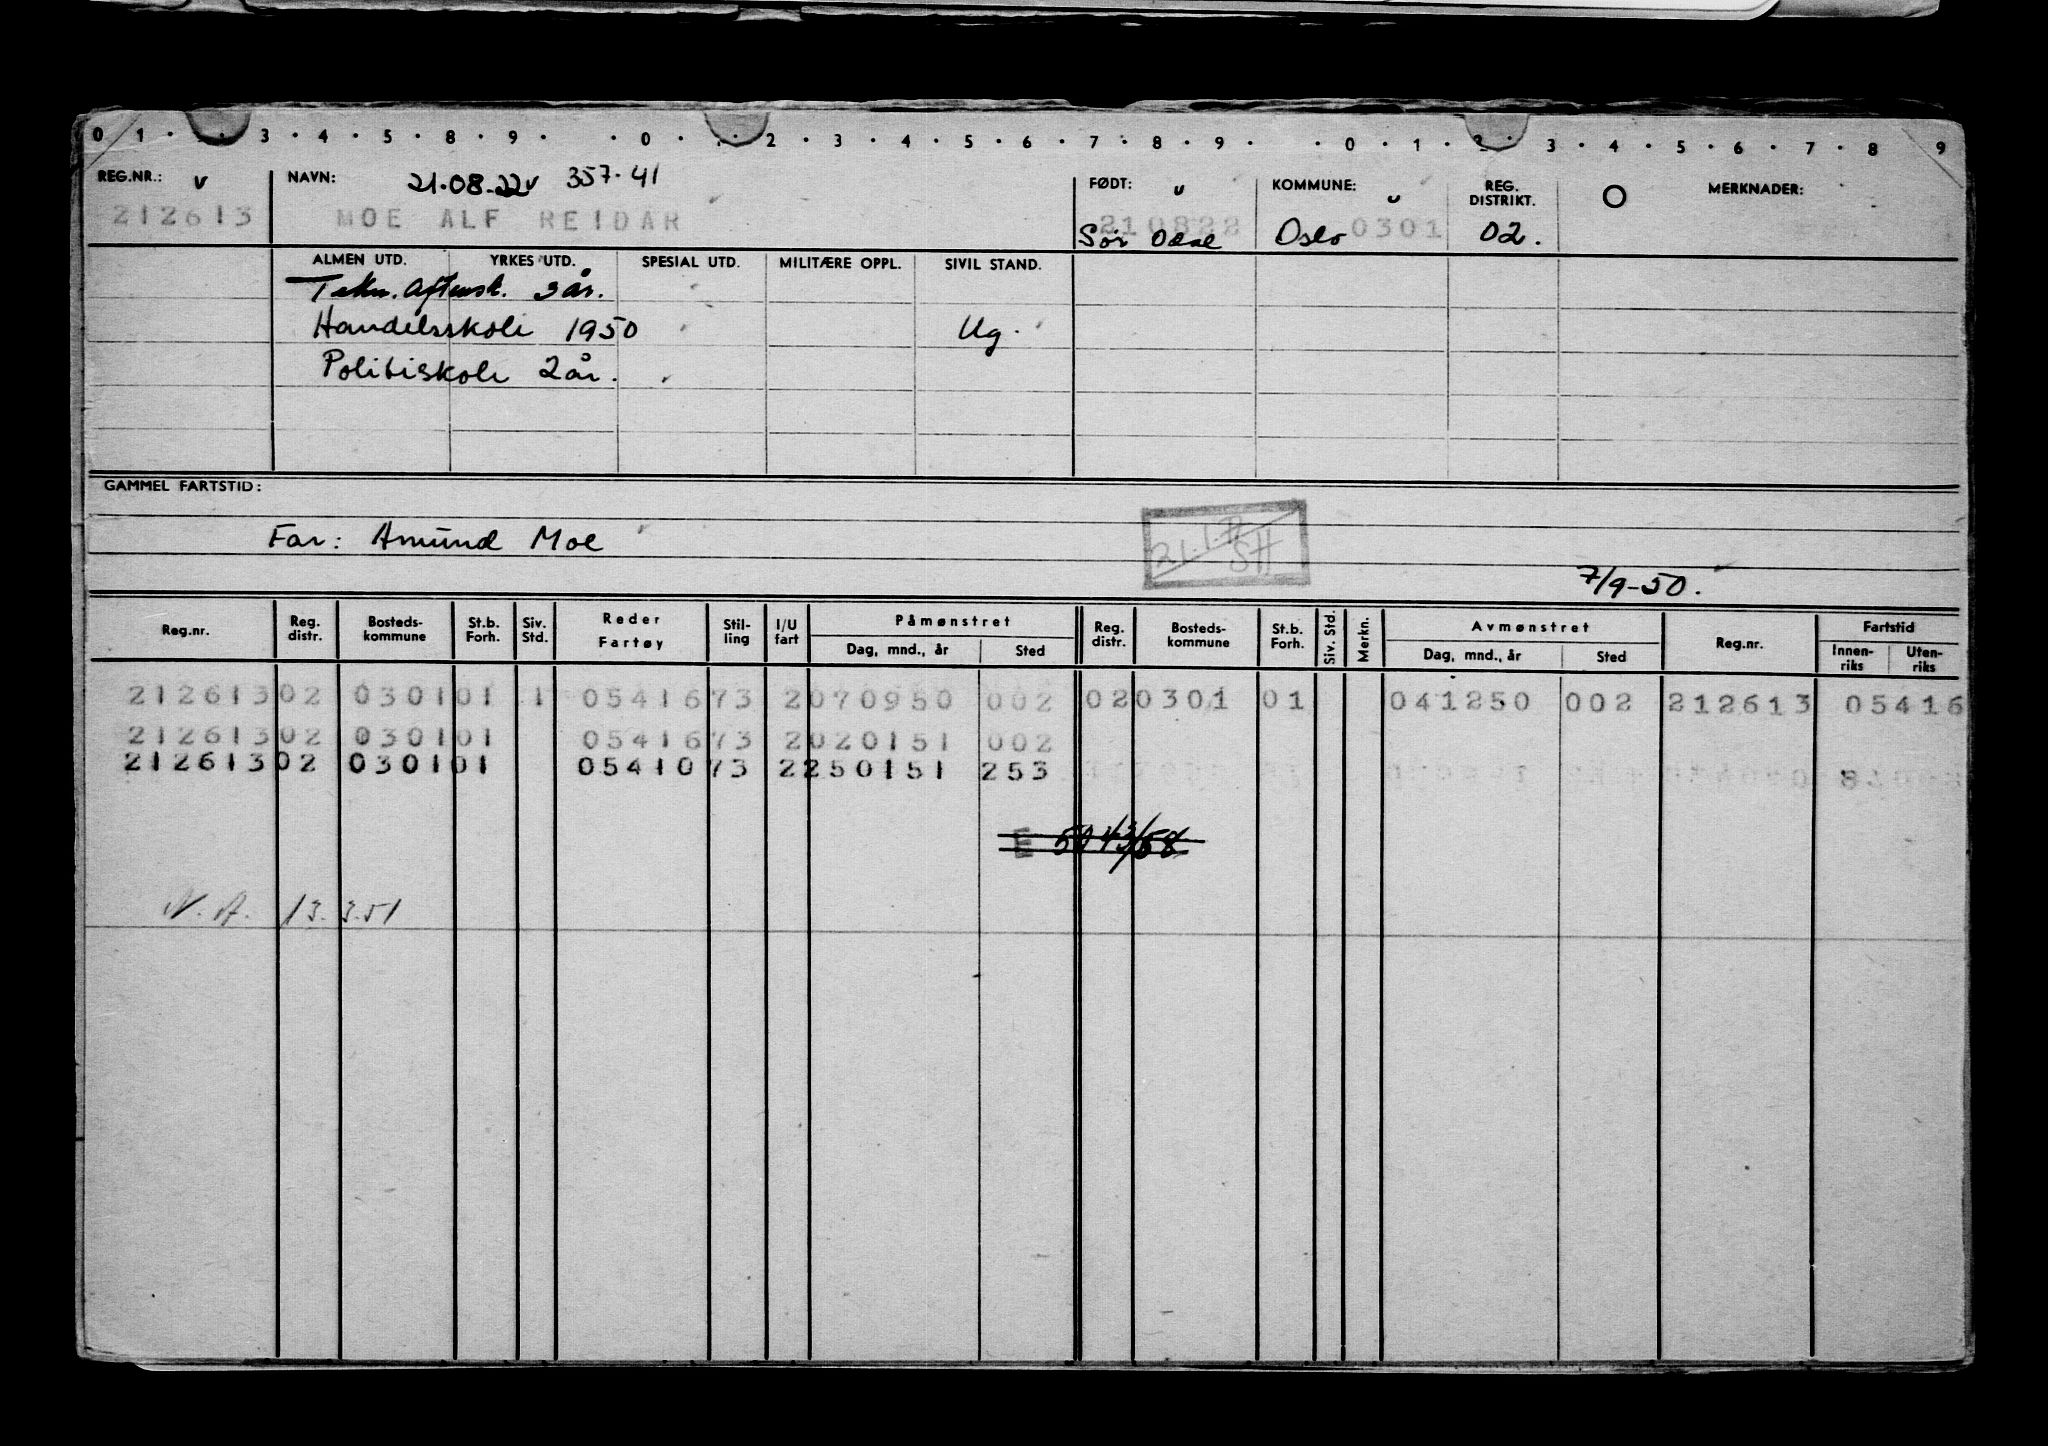 0 1 · 3 · 4 · 5 · 8 · 9 · · 0 · · 2 · 3 · 4 · 5 · 6 · 7 · 8 · 9 · · 0 · 1 · 2 · 3 · 4 · 5 · 6 · 7 · 8 9
REG.NR.: v NAVN: 21.08.22 v 357.41 FØDT: KOMMUNE: REG. DISTRIKT. O MERKNADER:
212613 MOE ALF REIDAR 210822 Oslo 0301 02.
Sør Odal
ALMEN UTD. YRKES UTD. SPESIAL UTD. MILITÆRE OPPL. SIVIL STAND.
Tekn. Aftensk. 3 år.
Handelsskole 1950 Ug.
Politiskole 2 år.
GAMMEL FARTSTID:
Far: Amund Moe
7/9-50.
Reg.nr. Reg. distr. Bosteds-kommune St.b. Forh. Siv. Std. Reder Fartøy Stil-ling I/U fart Påmønstret Reg. distr. Bosteds-kommune St.b. Forh. Siv. Std. Merkn. Avmønstret Reg.nr. Fartstid
Dag, mnd., år Sted Dag, mnd., år Sted Innen-riks Uten-riks
212613 02 0301 01 1 05416 73 2 070950 002 02 0301 01 041250 002 212613 05416
212613 02 0301 01 05416 73 2 020151 002
212613 02 0301 01 05410 73 2 250151 253
E
N. A. 13.3.51